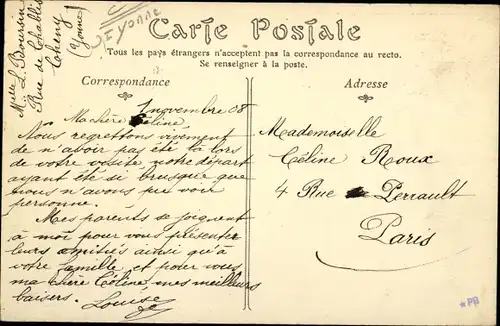 Mlle L. Boursin
Rue de Chablis
Cheny
(Yonne)
YONNE
Carte Postale
Tous les pays étrangers n'acceptent pas la correspondance au recto.
Se renseigner à la poste.
Correspondance
Adresse
1 novembre 08
Ma chère Céline
Nous regrettons vivement
de n'avoir pas été là lors
de votre visite, notre départ
ayant été si brusque que
nous n'avons pu voir
personne.
Mes parents se joignent
à moi pour vous présenter
leurs amitiés ainsi qu'à
votre famille et pour vous
ma chère Céline, mes meilleurs
baisers. Louise
Mademoiselle
Céline Roux
4 Rue Perrault
Paris
*PB